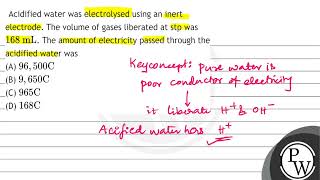 Acidified water was electrolysed using an inert
electrode. The volume of gases liberated at stp was
168 mL. The amount of electricity passed through the
acidified water was
(A) 96,500C
(B) 9,650C
(C) 965C
(D) 168C
Keyconcept: pure water is
poor conductor of electricity
it liberate H+ & OH-
Acified water has H+
PW